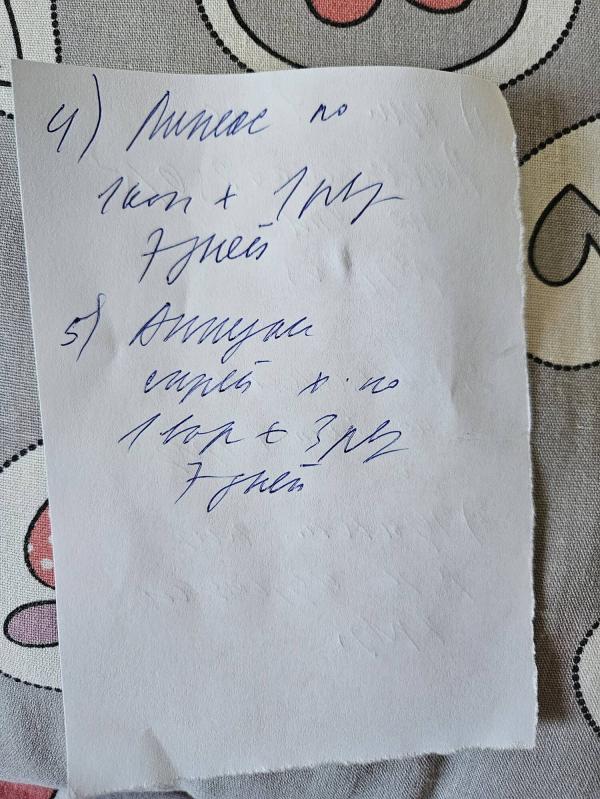 4) Линекс по
1 кап х 1 р/д
7 дней
5)
спрей х по
1 х 3 р/д
7 дней